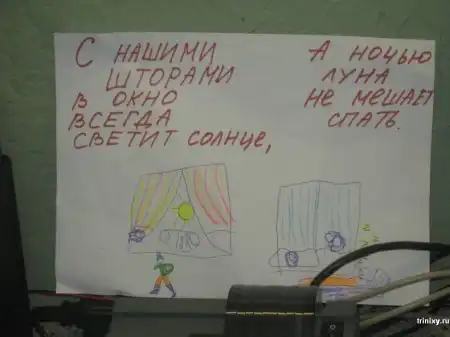 С НАШИМИ
ШТОРАМИ
В ОКНО
ВСЕГДА
СВЕТИТ СОЛНЦЕ,
А НОЧЬЮ
ЛУНА
НЕ МЕШАЕТ
СПАТЬ.
z z z
trinixy.ru